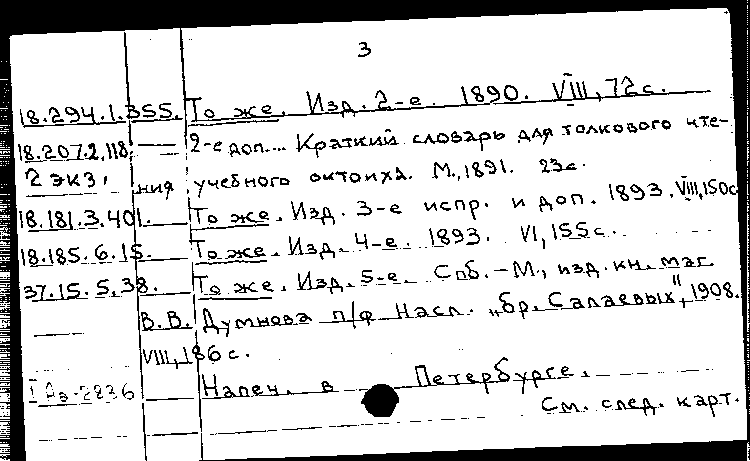 3
18.294.1.355. То же. Изд. 2-е. 1890. VIII, 72 с.
18.207.2.118, — 2-е доп.... Краткий словарь для толкового чте-
2 экз. ния учебного октоиха. М., 1891. 23 с.
18.181.3.401. То же. Изд. 3-е испр. и доп. 1893. VIII, 150с
18.185.6.15. То же. Изд. 4-е. 1893. VI, 155 с.
37.15.5.38. То же. Изд. 5-е. Спб.-М., изд. кн. маг.
В.В. Думнова п/ф Насл. „бр. Салаевых", 1908.
VIII, 186 с.
Напеч. в Петербурге.
См. след. карт.